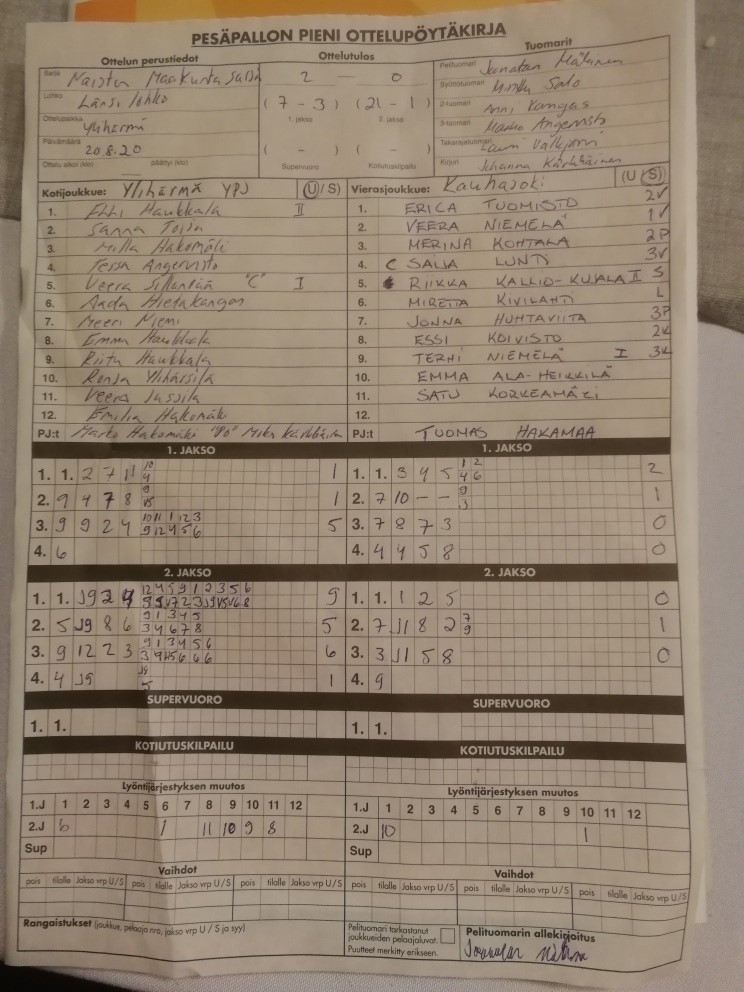 PESÄPALLON PIENI OTTELUPÖYTÄKIRJA
Ottelun perustiedot
Ottelutulos
Tuomarit
Sarja Naisten Maakuntasarja
2 — 0
Pelituomari Jonatan
Lohko Länsi lohko
(7 - 3) (21 - 1)
Syöttötuomari Salo
1. jakso 2. jakso
Ottelupaikka Ylihärmä
2-tuomari Anni Kangas
Päivämäärä 20.8.20
( - ) ( - )
3-tuomari Marko Angervisto
Takarajatuomari Lauri
Ottelu alkoi (klo) päättyi (klo)
Supervuoro Kotiutuskilpailu
Kirjuri Johanna Kärkkäinen
Kotijoukkue: Ylihärmä YPJ (U/S)
1. Haukkala II
2. Sanna
3. Milla Hakomäki
4. Tessa Angervisto
5. Veera Sillanpää "C" I
6. Aada Hietakangas
7. Meeri Niemi
8. Emma Haukkala
9. Riitu Haukkala
10. Ronja Ylihärsilä
11. Veera Jussila
12. Emilia Hakomäki
PJ:t Marko Hakomäki "Vo" Mika Kärkkäinen
Vierasjoukkue: Kauhajoki (U/S)
1. ERICA TUOMISTO 2V
2. VEERA NIEMELÄ 1V
3. MERINA KOHTALA 2P
4. C SALLA LUNTI 3V
5. RIIKKA KALLIO-KUJALA II S
6. MIRETTA KIVILAHTI L
7. JONNA HUHTAVIITA 3P
8. ESSI KOIVISTO 2K
9. TERHI NIEMELÄ I 3K
10. EMMA ALA-HEIKKILÄ
11. SATU KORKEAMÄKI
12.
PJ:t TUOMAS HAKAMAA
1. JAKSO
1. 1. 2 7 11 10 4 1
2. 9 4 7 8 9 1
3. 9 9 2 4 10 11 1 12 3 9 12 4 5 6 5
4. 6
1. JAKSO
1. 1. 3 4 5 1 2 4 6 2
2. 7 10 – – 9 3 1
3. 7 8 7 3 0
4. 4 4 5 8 0
2. JAKSO
1. 1. J9 2 4 12 4 5 9 1 2 3 5 6 9
2. 5 J9 8 6 9 1 3 4 5 3 4 6 7 8 5
3. 9 12 2 3 9 1 3 4 5 6 6
4. 4 J9 J9 5 1
2. JAKSO
1. 1. 1 2 5 0
2. 7 J1 8 2 7 9 1
3. 3 J1 5 8 0
4. 9
SUPERVUORO
1. 1.
SUPERVUORO
1. 1.
KOTIUTUSKILPAILU
KOTIUTUSKILPAILU
Lyöntijärjestyksen muutos
1.J 1 2 3 4 5 6 7 8 9 10 11 12
2.J 6 1 11 10 9 8
Sup
Lyöntijärjestyksen muutos
1.J 1 2 3 4 5 6 7 8 9 10 11 12
2.J 10 1
Sup
Vaihdot
pois tilalle Jakso vrp U/S pois tilalle Jakso vrp U/S pois tilalle Jakso vrp U/S
Vaihdot
pois tilalle Jakso vrp U/S pois tilalle Jakso vrp U/S pois tilalle Jakso vrp U/S
Rangaistukset (joukkue, pelaaja nro, jakso vrp U / S ja syy)
Pelituomari tarkastanut
joukkueiden pelaajaluvat.
Puutteet merkitty erikseen.
Pelituomarin allekirjoitus